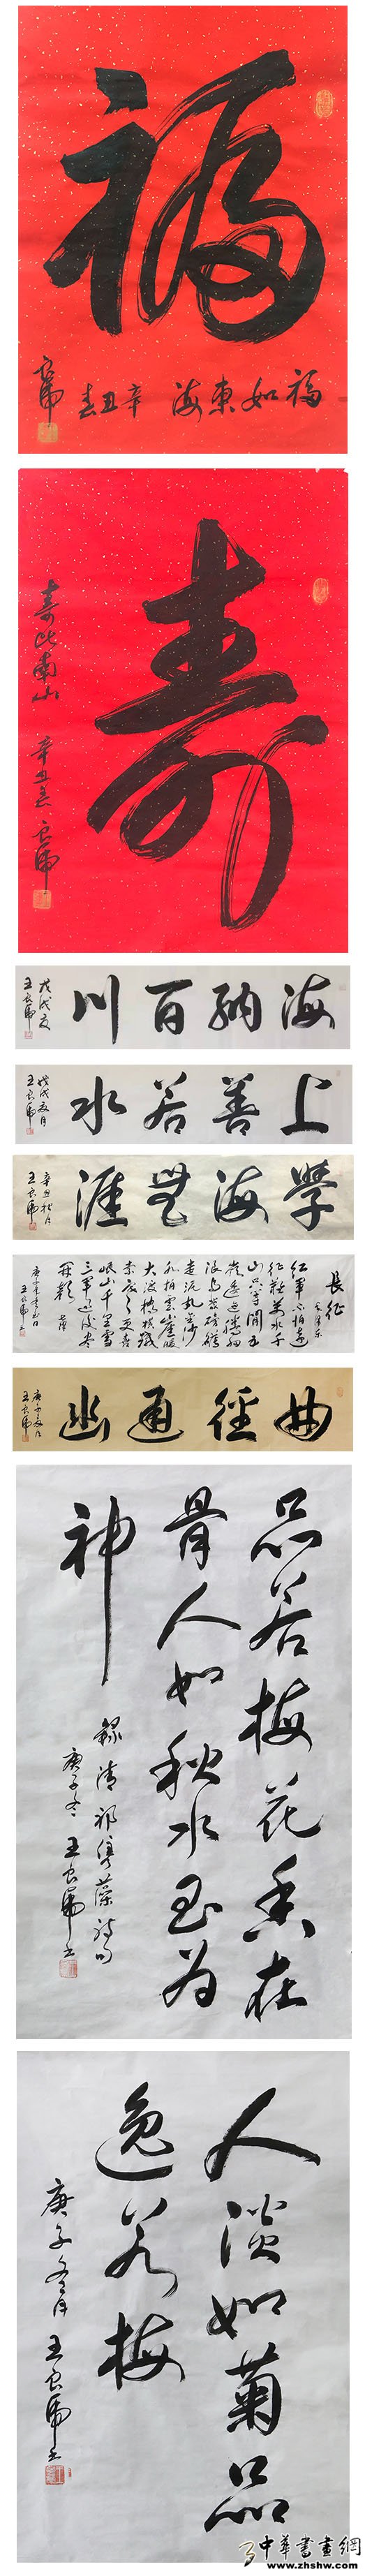 福
福如東海
辛丑春
良虎
壽
壽比南山
辛丑春 良虎
海納百川
戊戌夏
王良虎
上善若水
戊戌夏月
王良虎
學海無涯
辛丑秋月
王良虎
長征
毛澤東
紅軍不怕遠
征難萬水千
山只等閒五
嶺逶迤騰細
浪烏蒙磅礴
走泥丸金沙
水拍雲崖暖
大渡橋橫鐵
索寒更喜
岷山千里雪
三軍過後盡
開顏
王良虎
曲徑通幽
庚子夏月
王良虎
品若梅花香在
骨人如秋水玉為
神
錄清祁寯藻詩句
庚子冬 王良虎書
人淡如菊品
逸若梅
庚子冬月 王良虎書
中華書畫網
www.zhshw.com